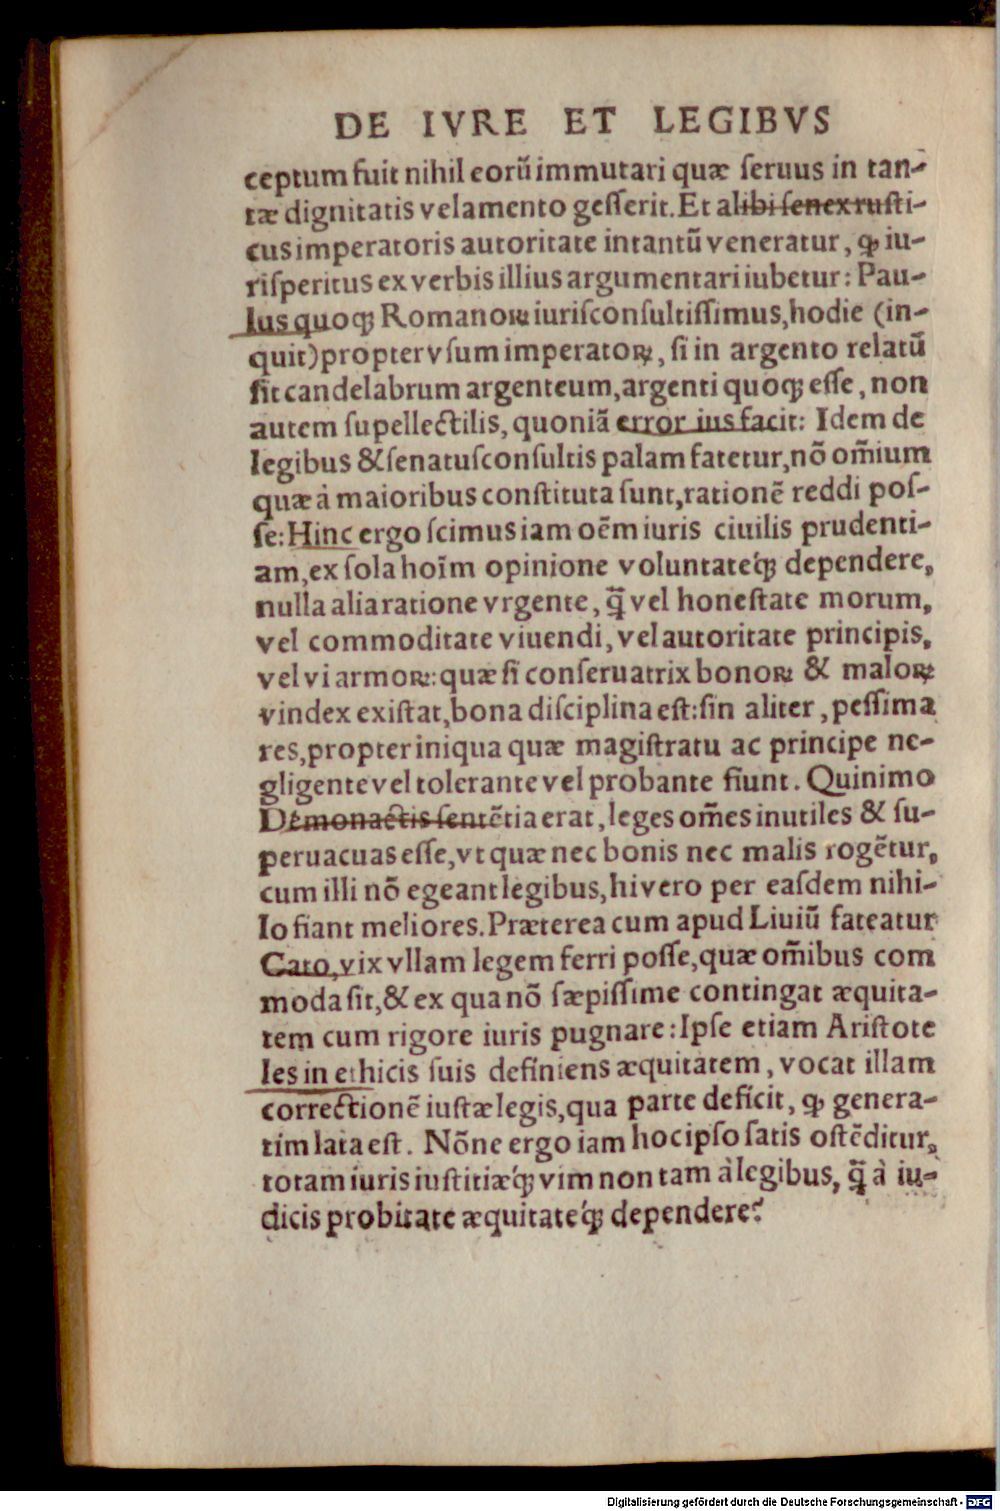 DE IVRE ET LEGIBVS
ceptum fuit nihil eorũ immutari quæ ſeruus in tan-
tæ dignitatis velamento geſſerit. Et alibi ſenex ruſti-
cus imperatoris autoritate intantũ veneratur, ꝙ iu-
riſperitus ex verbis illius argumentari iubetur: Pau-
lus quoqꝫ Romanoꝝ iuriſconſultiſſimus, hodie (in-
quit) propter vſum imperatoꝝ, ſi in argento relatũ
ſit candelabrum argenteum, argenti quoqꝫ eſſe, non
autem ſupellectilis, quoniã error ius facit: Idem de
legibus & ſenatuſconſultis palam fatetur, nõ om̃ium
quæ à maioribus conſtituta ſunt, rationẽ reddi poſ-
ſe: Hinc ergo ſcimus iam oẽm iuris ciuilis prudenti-
am, ex ſola hoĩm opinione voluntateq́ꝫ dependere,
nulla alia ratione vrgente, q̃ vel honeſtate morum,
vel commoditate viuendi, vel autoritate principis,
vel vi armoꝝ: quæ ſi conſeruatrix bonoꝝ & maloꝝ
vindex exiſtat, bona diſciplina eſt: ſin aliter, peſſima
res, propter iniqua quæ magiſtratu ac principe ne-
gligente vel tolerante vel probante fiunt. Quinimo
Demonactis ſentẽtia erat, leges om̃es inutiles & ſu-
peruacuas eſſe, vt quæ nec bonis nec malis rogẽtur,
cum illi nõ egeant legibus, hi vero per eaſdem nihi-
lo fiant meliores. Præterea cum apud Liuiũ fateatur
Cato, vix vllam legem ferri poſſe, quæ om̃ibus com
moda ſit, & ex qua nõ ſæpiſſime contingat æquita-
tem cum rigore iuris pugnare: Ipſe etiam Ariſtote
les in ethicis ſuis definiens æquitatem, vocat illam
correctionẽ iuſtæ legis, qua parte deficit, ꝙ genera-
tim lata eſt. Nõne ergo iam hoc ipſo ſatis oſtẽditur,
totam iuris iuſtitiæq́ꝫ vim non tam à legibus, q̃ à iu-
dicis probitate æquitateq́ꝫ dependere?
Digitalisierung gefördert durch die Deutsche Forschungsgemeinschaft - DFG